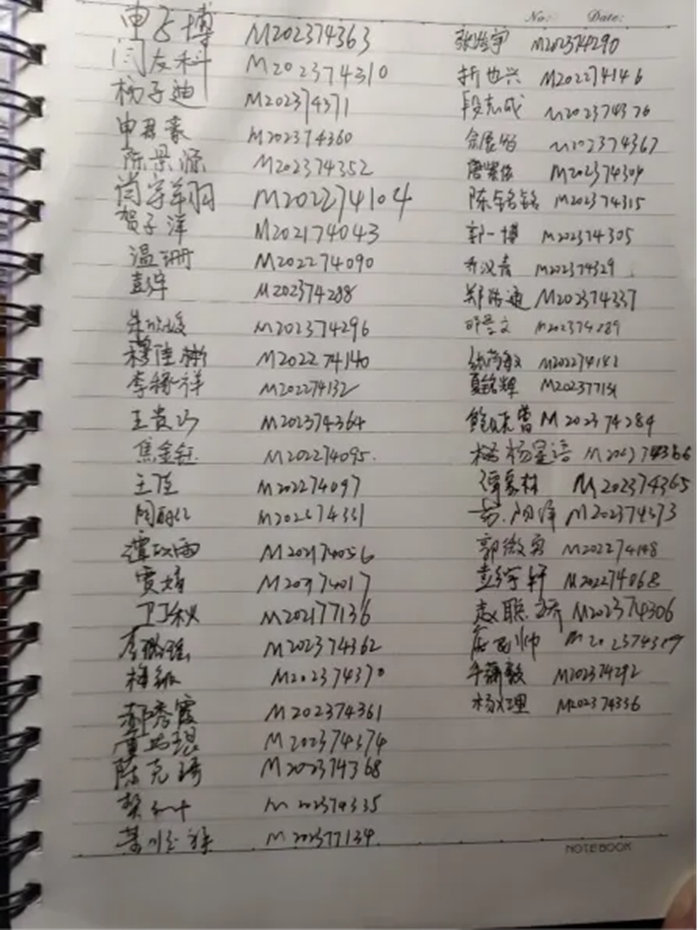 No: Date:
申飞博 M202374363
闫友科 M202374310
杨子迪 M202374371
申君豪 M202374360
陈景源 M202374352
肖宇羊羽 M202274104
贺子洋 M202174043
温珊 M202274090
彭华 M202374288
M202374296
穆佳彬 M202274140
李豫祥 M202274132
王贵巧 M202374364
焦金钰 M202274095.
王佳 M202274097
周丽红
谭玖雨 M202174056
贾婧
卫丁秋 M202177136
M202374362
梅振 M202374370
郝秀霞 M202374361
M202374374
陈克琦 M202374368
M202374335
M202377134
张浩宇 M202374290
折世兴 M202274146
段志成 M202374376
M202374367
M202374304
陈铭铭 M202374315
郭一博 M202374305
乔汉青 M202374329
郑浩通 M202374337
M202374289
M202274142
夏铭辉 M202377131
M202374284
杨星语 M202374366
谭豪林 M202374365
M202374373
郭微微 M202274148
彭绍轩 M202274068
赵聪 M202374306
庞飞帅
牛颖毅 M202374292
杨文理 M202374336
NOTEBOOK